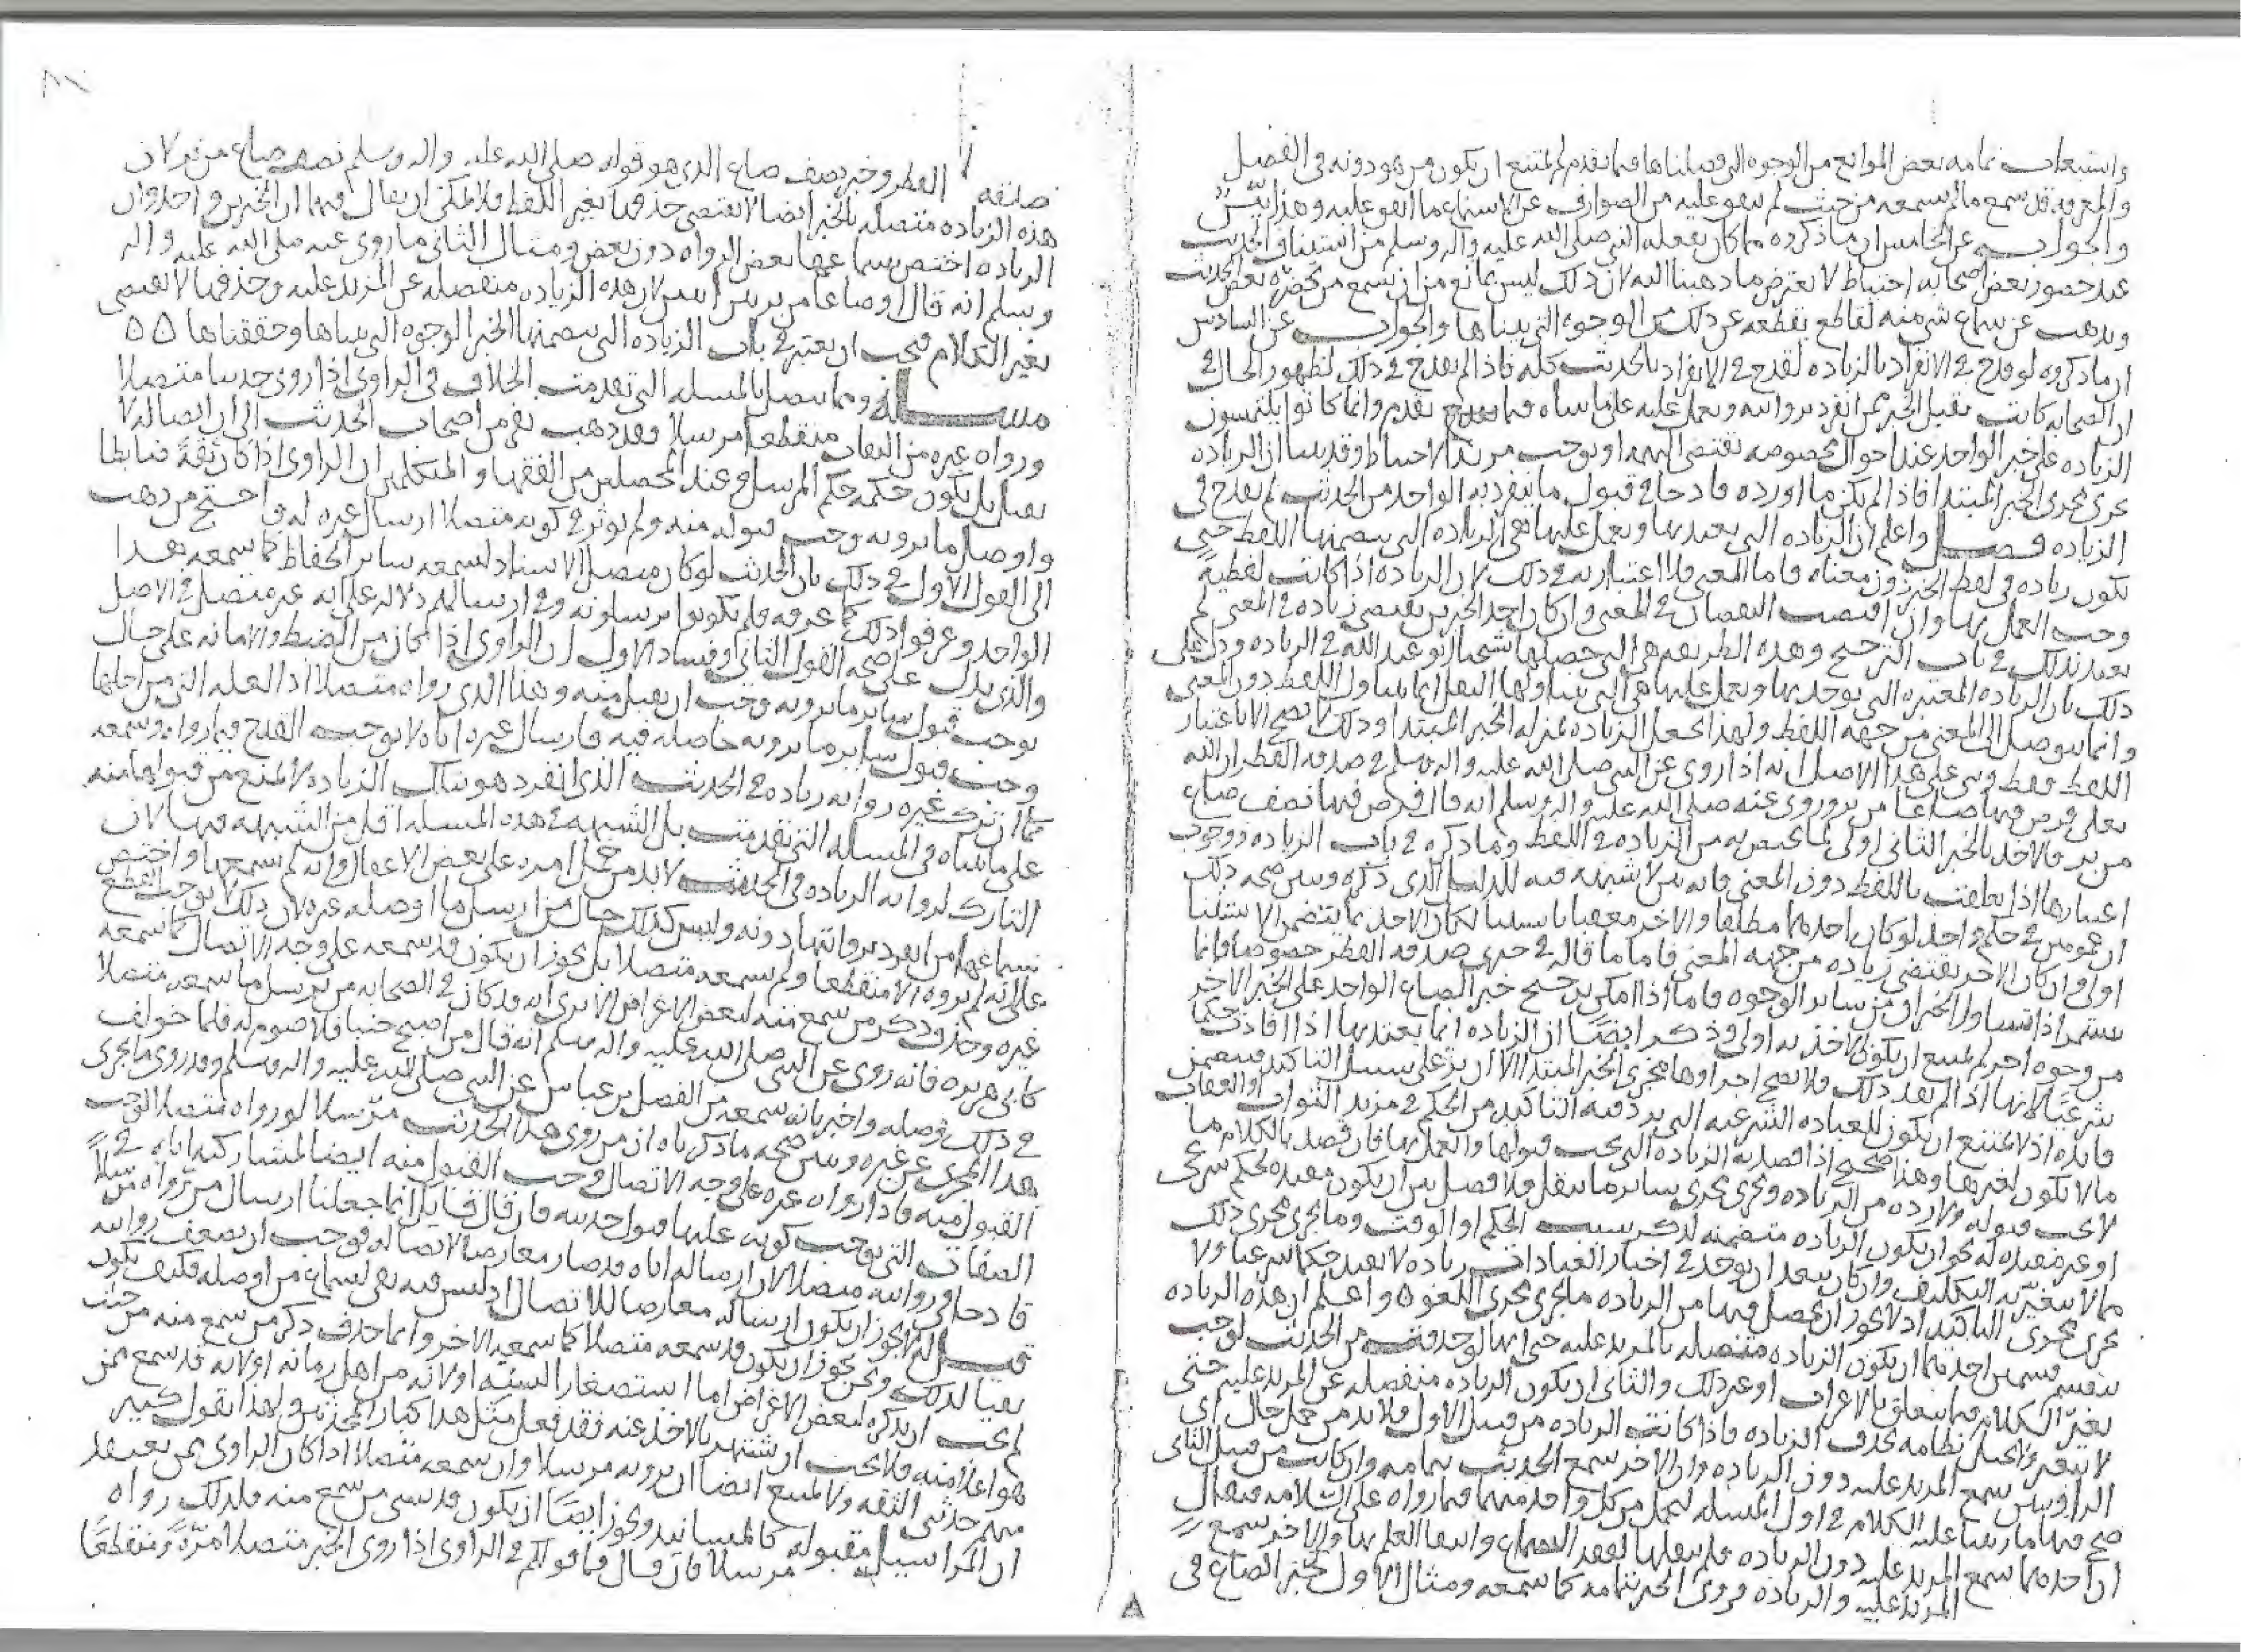 واستيعاب تمامه بعض الموانع من الوجوه التي فصلناها فيما تقدم لم يمتنع ان يكون من هو دونه في الفضل
والمعرفة قد سمع ما لم يسمعه من حيث لم يتفق عليه من الصوارف عن الاستماع ما اتفق عليه وهذا بيّن
والجواب عن الخامس ان ما ذكروه مما كان يفعله النبي صلى الله عليه واله وسلم من استيناف الحديث
عند حضور بعض اصحابه احتياطا لا يعترض ما ذهبنا اليه لان ذلك ليس بمانع من ان يسمع من بحضرته بعض الحديث
ويذهب عن سماع شي منه لقاطع يقطعه عن ذلك من الوجوه التي بيناها والجواب عن السادس
ان ما ذكروه لو قدح في الانفراد بالزياده لقدح في الانفراد بالحديث كله فاذا لم يقدح في ذلك لظهور الحال في
ان الصحابه كانت تقبل الخبر ممن انفرد بروايته ويعمل عليه على ما بيناه فيما تقدم وانما كانوا يلتمسون
الزياده على خبر الواحد عند احوال مخصوصه تقتضي التهمه او توجب مزيد الاحتياط وقد بينا ان الزياده
تجري مجرى الخبر المبتدا فاذا لم يكن ما اورده قادحا في قبول ما يتفرد به الواحد من الحديث لم يقدح في
الزياده فصل واعلم ان الزياده التي يعتد بها ويعمل عليها هي الزياده التي يتضمنها اللفظ حتى
تكون زياده في لفظ الخبر دون معناه فاما المعنى فلا اعتبار به في ذلك لان الزياده اذا كانت لفظية
وجب العمل بها وان اقتضت النقصان في المعنى وان كان احد الخبرين يقتضي زياده في المعنى لم
يعتد بذلك في باب الترجيح وهذه الطريقه هي التي حصلها شيخنا ابو عبد الله في الزياده ودل على
ذلك بان الزياده المعتبره التي يوخذ بها ويعمل عليها هي التي يتناولها النقل انما يتناول اللفظ دون المعنى
وانما يتوصل الى المعنى من جهه اللفظ ولهذا تجعل الزياده بمنزله الخبر المبتدا وذلك لا يصح الا باعتبار
اللفظ فقط وبني على هذا الاصل انه اذا روي عن النبي صلى الله عليه واله وسلم في صدقه الفطر ان الله
تعالى فرض فيها صاعا من بر وروي عنه صلى الله عليه واله وسلم انه قال فرض فيها نصف صاع
من بر فالاخذ بالخبر الثاني اولى لما يختص به من الزياده في اللفظ وما ذكره في باب الزياده ووجوب
اعتبارها اذا تعلقت باللفظ دون المعنى فانه بين لا شبهه فيه للدليل الذي ذكره وبين صحه ذلك
ان عمومين في حكم واحد لو كان احدهما مطلقا والاخر معقبا باستثنا لكان الاخذ بما يتضمن الاستثنا
اولى وان كان الاخر يقتضي زياده من جهه المعنى فاما ما قاله في خبري صدقه الفطر خصوصا فانما
يستمر اذا تساوى الخبران من ساير الوجوه فاما اذا امكن ترجيح خبر الصاع الواحد على الخبر الاخر
من وجوه اخر لم يمتنع ان يكون الاخذ به اولى وذكر ايضا ان الزياده انما يعتد بها اذا افادت حكما
شرعيا لانها اذا لم تفد ذلك فلا يصح اجراوها مجرى الخبر المبتدا الا ان ترد على سبيل التاكيد فيتضمن
فايده اذ لا يمتنع ان يكون للعباده الشرعيه التي يرد فيه التاكيد من الحكم في مزيد الثواب او العقاب
ما لا يكون لغيرها وهذا صحيح اذا قصد به الزياده التي يجب قبولها والعمل بها فان قصد بالكلام ما
لا يجب قبوله ولا رده من الزياده ويجري مجرى ساير ما ينقل فلا فصل بين ان يكون مفيده لحكم شرعي
او غير مفيده له نحو ان يكون الزياده متضمنه لذكر سبب الحكم او الوقت وما يجري مجرى ذلك
مما لا يتغير به التكليف وان كان يبعد ان يوجد في اخبار العبادات زياده لا تفيد حكما شرعيا ولا
تجري مجرى التاكيد اذ لا يجوز ان يحصل فيها من الزياده ما يجري مجرى اللغو واعلم ان هذه الزياده
تنقسم قسمين احدهما ان يكون الزياده متصله بالمزيد عليه حتى انها لو حذفت من الحديث لوجب
تغير الكلام فيما يتعلق بالاعراب او غير ذلك والثاني ان يكون الزياده منفصله عن المزيد عليه حتى
لا يتغير ولا يختل نظامه بحذف الزياده فاذا كانت الزياده من قبيل الاول فلا بد من حمل حال اي
الراويين سمع المزيد عليه دون الزياده وان الاخر سمع الحديث بتمامه وان كانت من قبيل الثاني
صح فيها ما رتبنا عليه الكلام في اول المسله ليحمل من كل واحد منهما فيما رواه على السلامه فيقال
ان احدهما سمع المزيد عليه دون الزياده فلم ينقلها لفقد السماع وانتفا العلم بها والاخر سمع
المزيد عليه والزياده فروى الخبر بتمامه كما سمعه ومثال الاول خبر الصاع في
صدقه الفطر وخبر نصف صاع الذي هو قوله صلى الله عليه واله وسلم نصف صاع من بر لان
هذه الزياده متصله بالخبر ايضا لا يقتضي حذفها تغير اللفظ فلا يمكن ان يقال فيها ان الخبرين واحد وان
الزياده اختص بسماعها بعض الرواه دون بعض ومثال الثاني ما روي عنه صلى الله عليه واله
وسلم انه قال او صاعا من بر بين اثنين لان هذه الزياده منفصله عن المزيد عليه وحذفها لا يقتضي
تغير الكلام فيجب ان يعتبر في باب الزياده التي يتضمنها الخبر الوجوه التي بيناها وحققناها ۵۵
مسالة ومما يتصل بالمسله التي تقدمت الخلاف في الراوي اذا روى حديثا متصلا
ورواه غيره من الثقات منقطعا مرسلا فقد ذهب نفر من اصحاب الحديث الى ان اتصاله لا
يقبل بل يكون حكمه حكم المرسل وعند المحصلين من الفقها والمتكلمين ان الراوي اذا كان ثقة ضابطا
واوصل ما يرويه وجب قبوله منه ولم يوثر في كونه متصلا ارسال غيره له واحتج من ذهب
الى القول الاول في ذلك بان الحديث لو كان متصل الاسناد لسمعه ساير الحفاظ كما سمعه هذا
الواحد وعرفوا ذلك كما عرفه فلم يكونوا يرسلونه وفي ارسالهم دلاله على انه غير متصل في الاصل
والذي يدل على صحه القول الثاني وفساد الاول ان الراوي اذا كان من الضبط والامانه على حال
يوجب قبول ساير ما يرويه وجب ان يقبل منه وهذا الذي رواه متصلا اذ العله التي من اجلها
وجب قبول ساير ما يرويه حاصله فيه فارسال غيره اياه لا يوجب القدح فيما رواه وسمعه
كما ان ترك غيره روايه زياده في الحديث الذي انفرد هو بتلك الزياده لا يمنع من قبولها منه
على ما بيناه في المسله التي تقدمت بل الشبهه في هذه المسله اقل من الشبهه فيها لان
التارك لروايه الزياده في الحديث لا بد من حمل امره على بعض الاغفال وانه لم يسمعها واختص
بسماعها من انفرد بروايتها دونه وليس كذلك حال من ارسل ما اوصله غيره لان ذلك لا يوجب القطع
على انه لم يروه الا منقطعا ولم يسمعه متصلا بل يجوز ان يكون قد سمعه على وجه الاتصال كما سمعه
غيره وحذف ذكر من سمع منه لبعض الاغراض الا ترى انه قد كان في الصحابه من يرسل ما سمعه متصلا
كابي هريره فانه روى عن النبي صلى الله عليه واله وسلم انه قال من اصبح جنبا فلا صوم له فلما خولف
في ذلك وصله واخبر بانه سمعه من الفضل بن عباس عن النبي صلى الله عليه واله وسلم وقد روي ما يجري
هذا المجرى عن غيره وبين صحه ما ذكرناه ان من روى هذا الحديث مرسلا لو رواه متصلا لوجب
القبول منه فاذا رواه غيره على وجه الاتصال وجب القبول منه ايضا لمشاركته اياه في
الصفات التي توجب كونه عليها قبول حديثه فان قال قايل انما جعلنا ارسال من رواه مرسلا
قادحا في روايته متصلا لان ارساله اياه قد صار معارضا لاتصاله فوجب ان يضعف روايته
قيل له لا يجوز ان يكون ارساله معارضا للاتصال اذ ليس فيه نفي لسماع من اوصله فكيف يكون
نفيا لذلك ونحن نجوز ان يكون قد سمعه متصلا كما سمعه الاخر وانما حذف ذكر من سمع منه من حيث
لم يحب ان يذكره لبعض الاغراض اما استصغارا لسنه او لانه من اهل زمانه او لانه قد سمع ممن
هو اعلا منه فلا يحب ان يشتهر بالاخذ عنه فقد فعل مثل هذا كبار المحدثين ولهذا يقول كثير
منهم حدثني الثقه ولا يمتنع ايضا ان يرويه مرسلا وان سمعه متصلا اذا كان الراوي ممن يعتقد
ان المراسيل مقبوله كالمسانيد ويجوز ايضا ان يكون قد نسي من سمع منه فلذلك رواه
مرسلا فان قال فما قولكم في الراوي اذا روى الخبر متصلا مرّة ومنقطعا